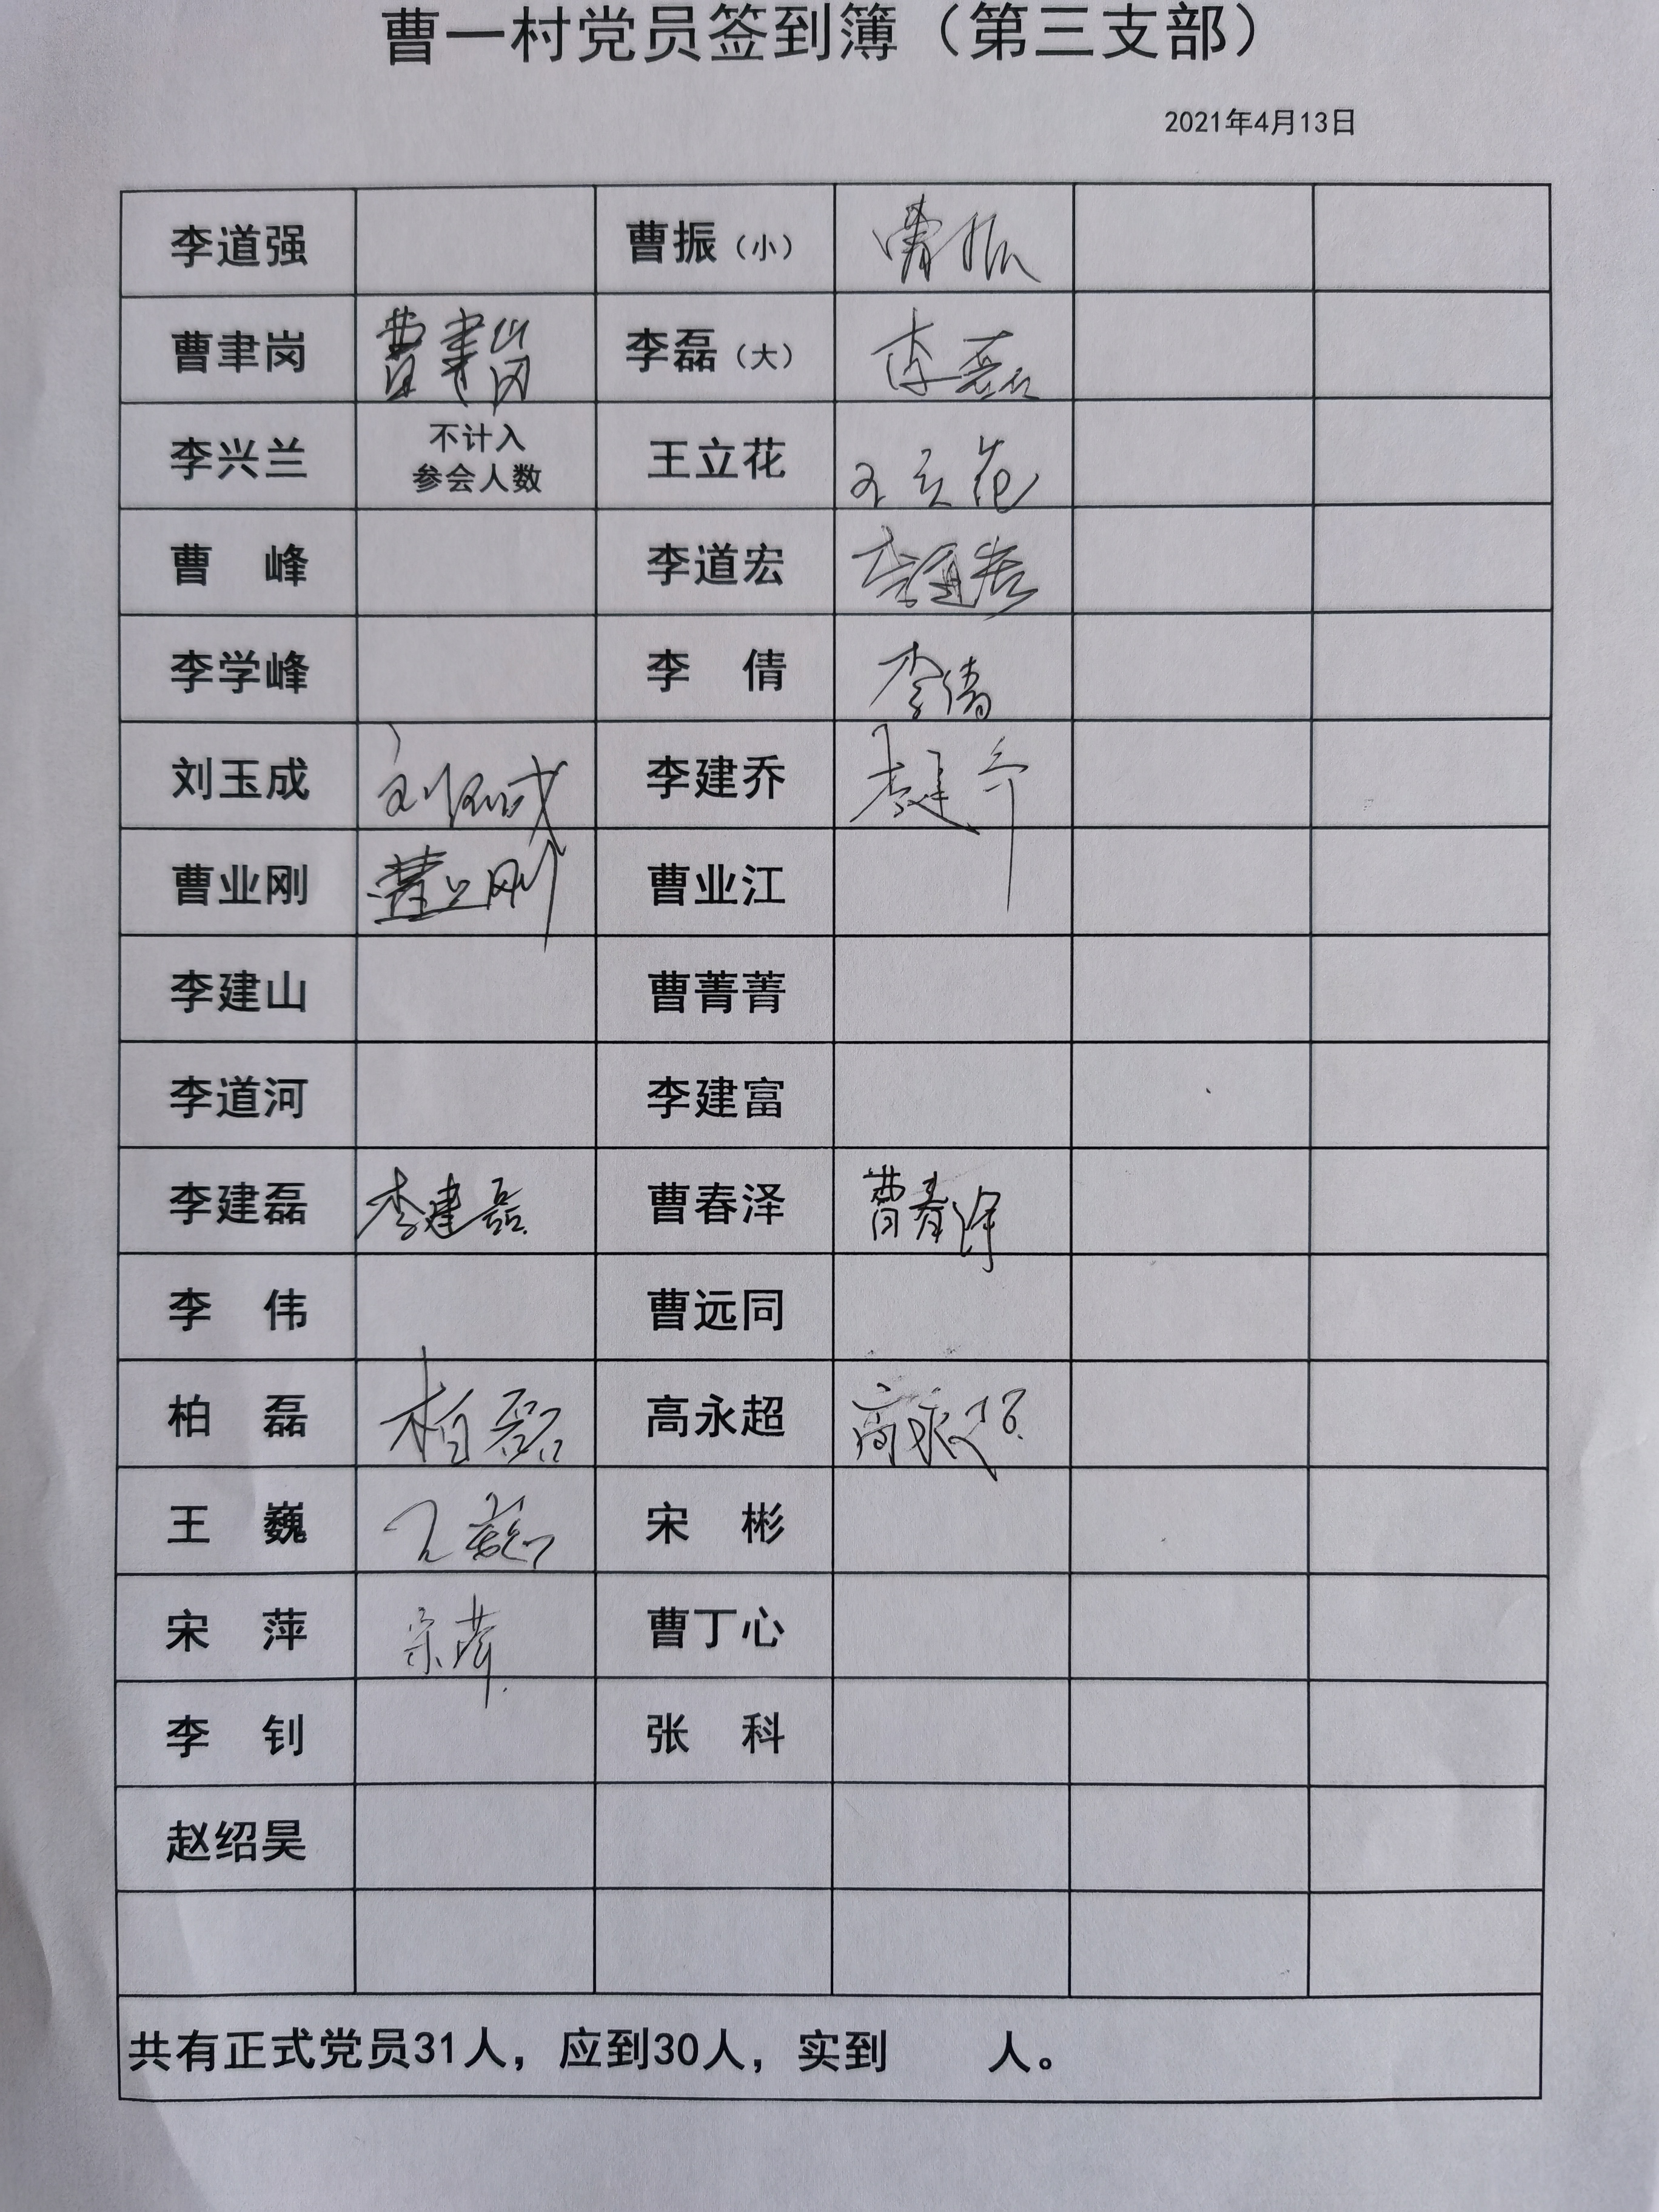 曹一村党员签到簿（第三支部）
2021年4月13日
李道强 曹振（小） 曹振
曹聿岗 曹聿岗 李磊（大） 李磊
李兴兰 不计入 王立花 王立花
参会人数
曹 峰 李道宏 李道宏
李学峰 李 倩 李倩
刘玉成 刘玉成 李建乔 李建乔
曹业刚 曹业刚 曹业江
李建山 曹菁菁
李道河 李建富
李建磊 李建磊 曹春泽 曹春泽
李 伟 曹远同
柏 磊 柏磊 高永超 高永超
王 巍 王巍 宋 彬
宋 萍 宋萍 曹丁心
李 钊 张 科
赵绍昊
共有正式党员31人，应到30人，实到 人。